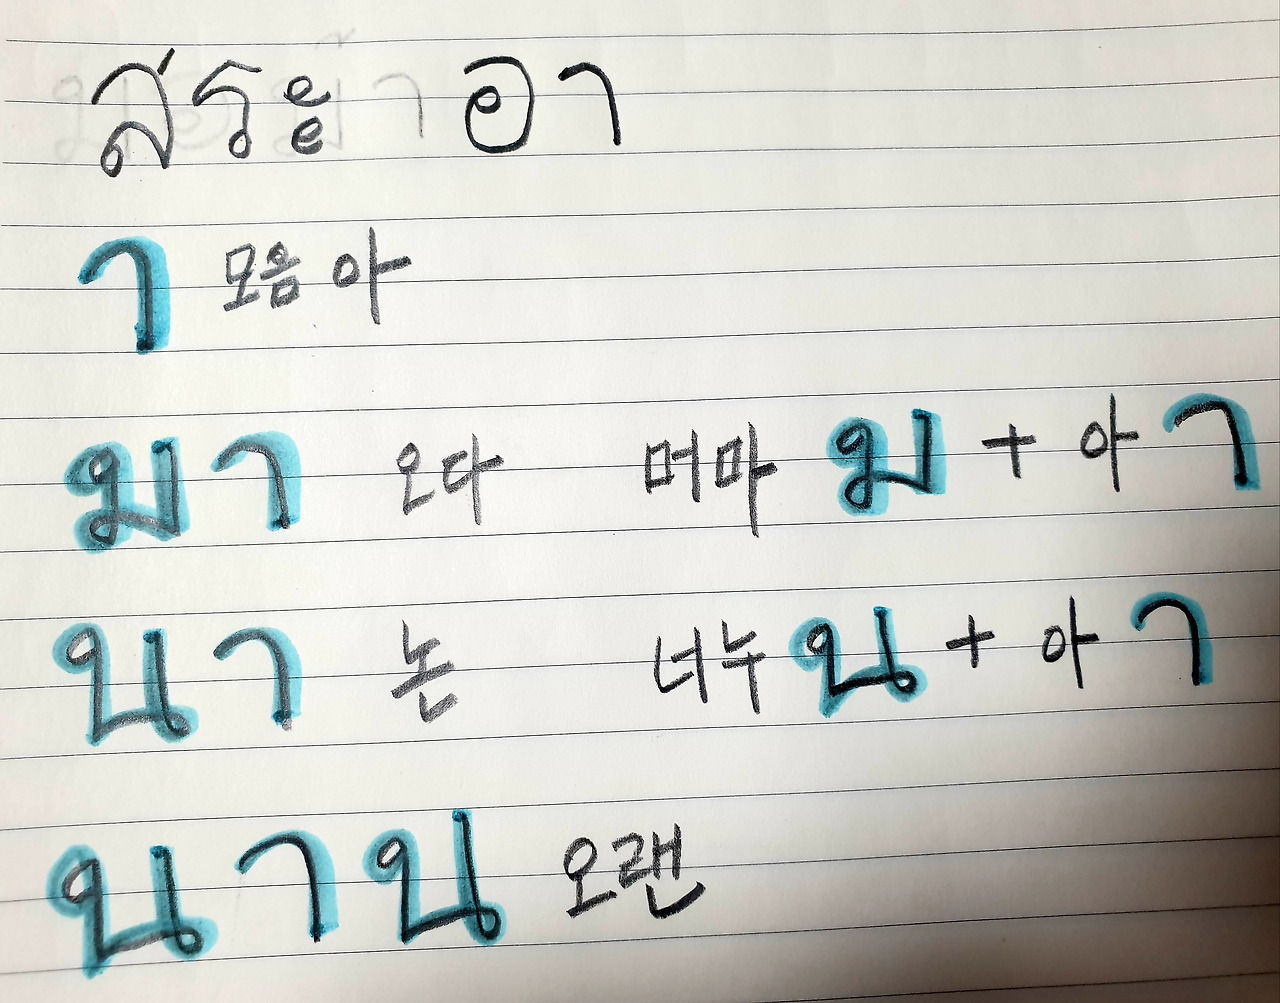 สระ อา
า 모음 아
มา 오다 머마 ม + 아 า
นา 논 너누 น + 아 า
นาน 오랜